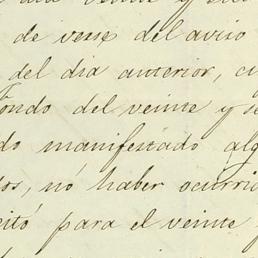 de verse del aviso
del dia anterior, cu
Fondo del veinte y se
do manifestado alg
os, nó haber ocurrid
citó para el veinte y